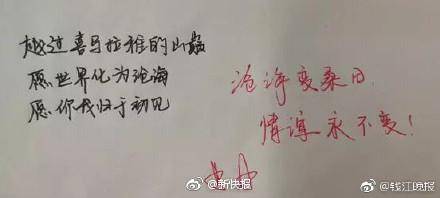 越过喜马拉雅的山巅
愿世界化为沧海
愿你我归于初见
沧海变桑田
情谊永不变!
@新快报
@钱江晚报